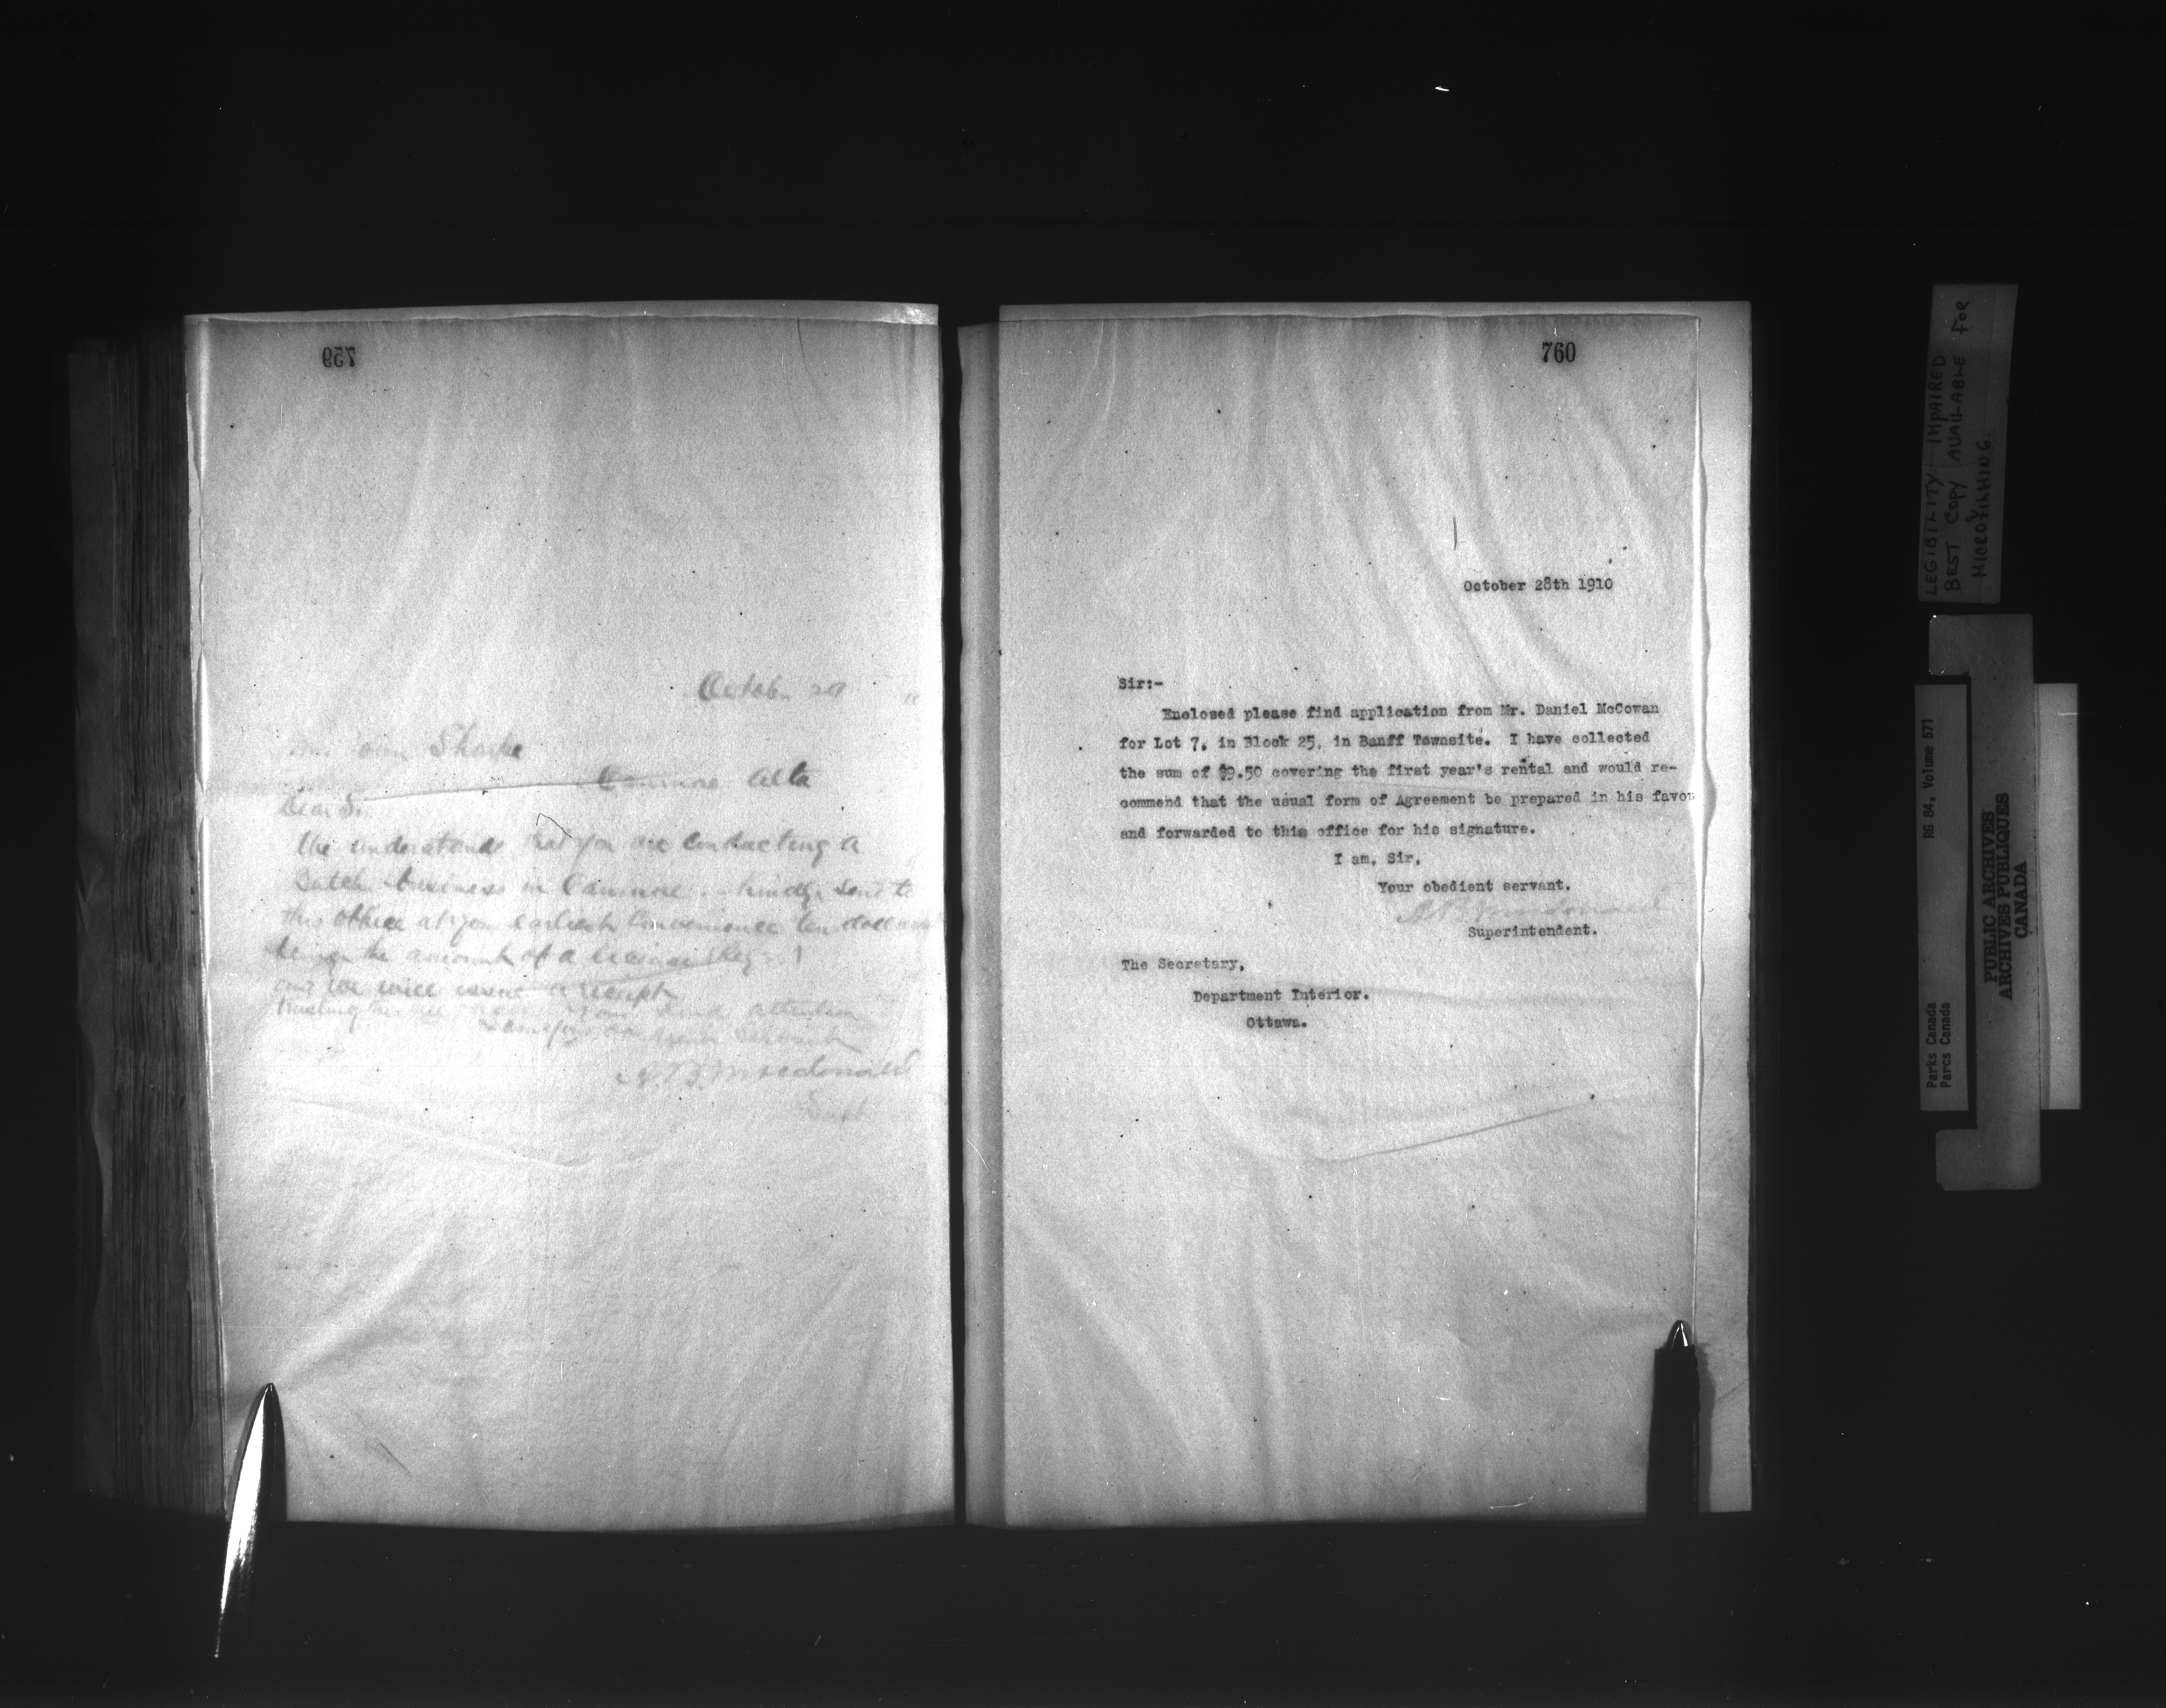 759
Octob. 29
Sharpe
Canmore Alta
Dear Sir
We understand that you are contracting a
Butcher business in Canmore. Kindly send to
this office at your earliest convenience ten dollars
being the amount of a license
and we will issue a receipt
Trusting this your kind attention
servant
A.B. Macdonald
Supt
760
October 28th 1910
Sir:-
Enclosed please find application from Mr. Daniel McCowan
for Lot 7, in Block 25, in Banff Townsite. I have collected
the sum of $9.50 covering the first year's rental and would re-
commend that the usual form of Agreement be prepared in his favou
and forwarded to this office for his signature.
I am, Sir,
Your obedient servant.
Macdonald
Superintendent.
The Secretary,
Department Interior.
Ottawa.
LEGIBILITY IMPAIRED
BEST COPY AVAILABLE FOR
MICROFILMING.
Parks Canada RG 84, Volume 571
Parcs Canada
PUBLIC ARCHIVES
ARCHIVES PUBLIQUES
CANADA